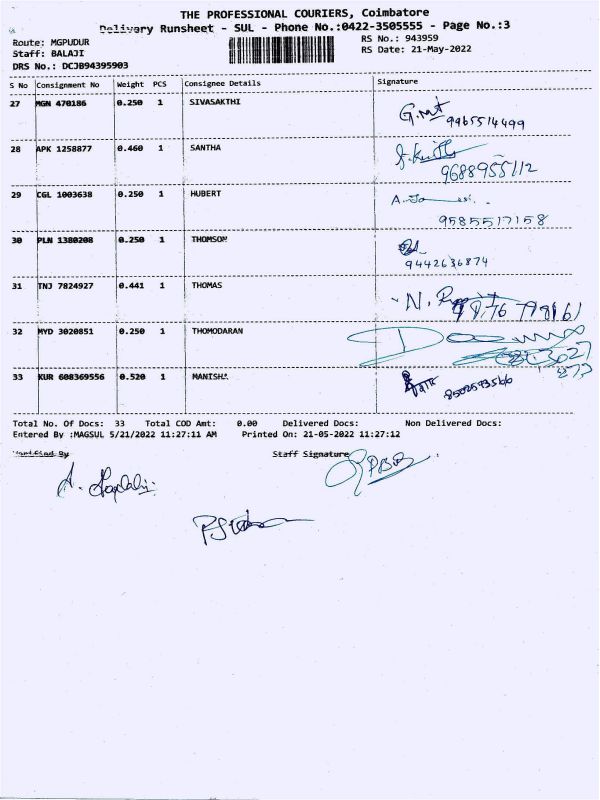 THE PROFESSIONAL COURIERS, Coimbatore
Delivery Runsheet - SUL - Phone No.:0422-3505555 - Page No.:3
Route: MGPUDUR
RS No.: 943959
Staff: BALAJI
RS Date: 21-May-2022
DRS No.: DCJB94395903
S No Consignment No Weight PCS Consignee Details Signature
27 MGN 470186 0.250 1 SIVASAKTHI
9965514499
28 APK 1258877 0.460 1 SANTHA
9688955112
29 CGL 1003638 0.250 1 HUBERT
9585517158
30 PLN 1380208 0.250 1 THOMSON
9442636874
31 TNJ 7824927 0.441 1 THOMAS
32 MYD 3020851 0.250 1 THOMODARAN
33 KUR 608369556 0.520 1 MANISHA
Total No. Of Docs: 33 Total COD Amt: 0.00 Delivered Docs: Non Delivered Docs:
Entered By :MAGSUL 5/21/2022 11:27:11 AM Printed On: 21-05-2022 11:27:12
Verified By Staff Signature